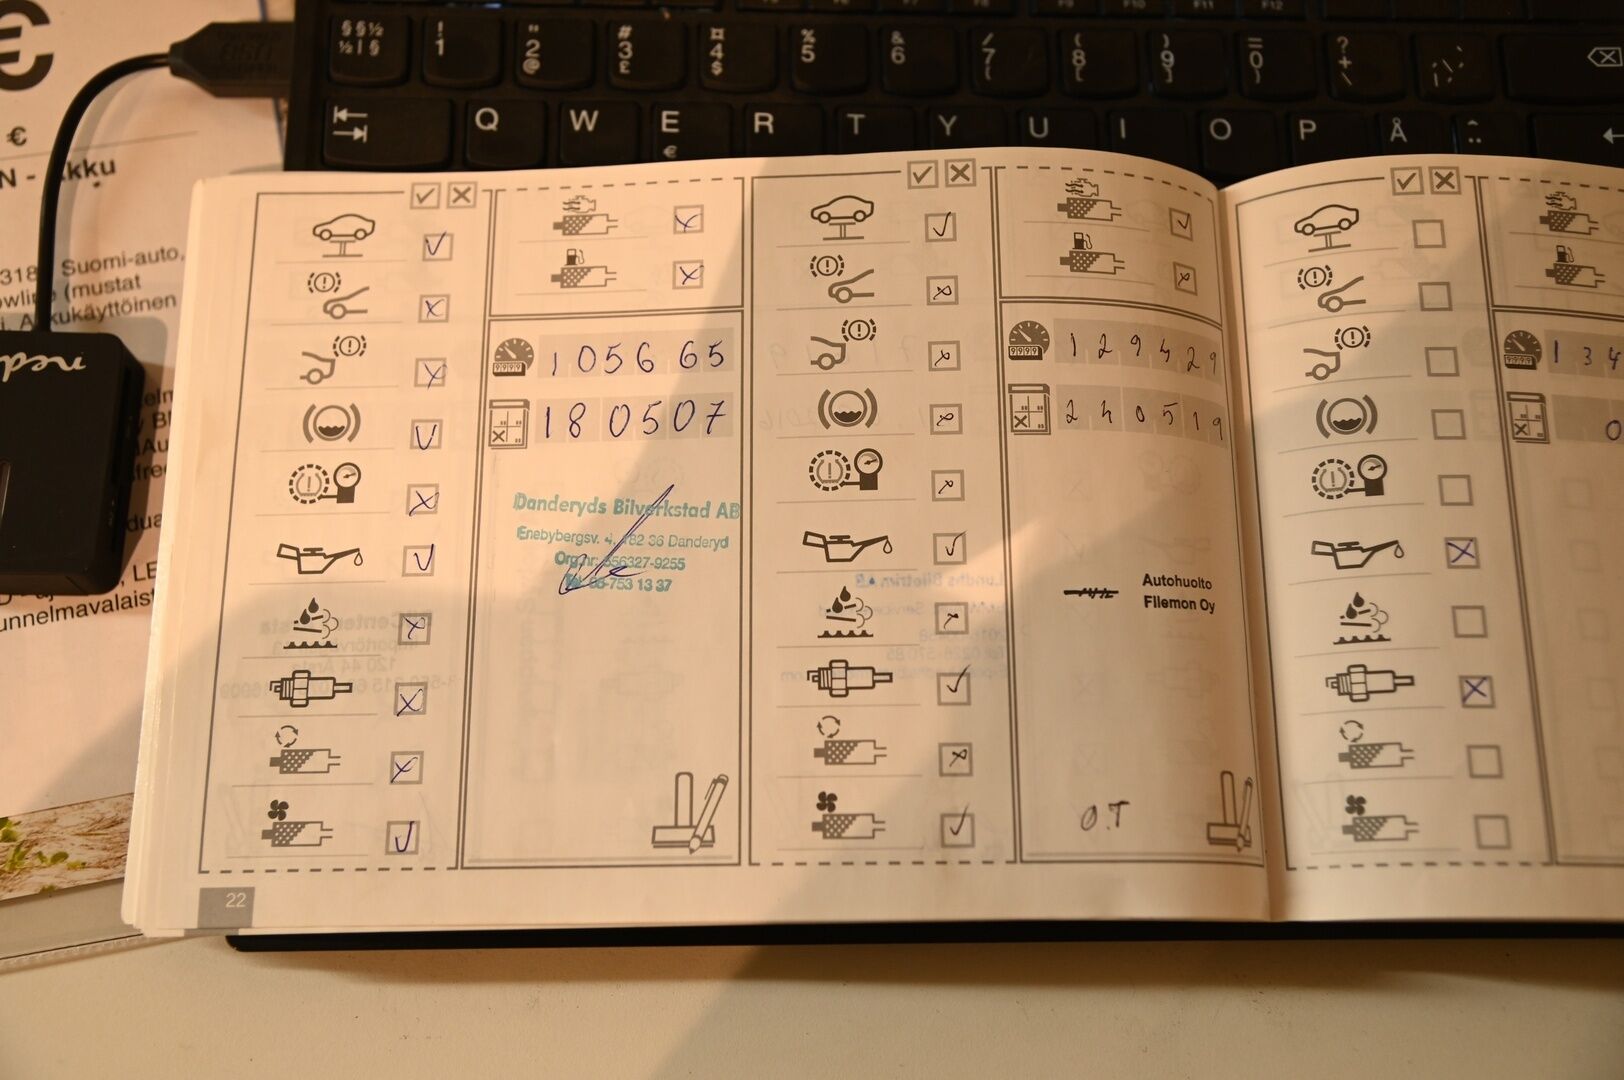 €
€
N - Akku
318
Suomi-auto,
(mustat
kukäyttöinen
LE
unnelmavalaist
! 1
" 2 @
# 3 £
¤ 4 $
% 5
& 6
/ 7 {
( 8 [
) 9 ]
= 0 }
? + \
F10
F11
F12
Q W E R T Y U I O P Å
€
105665
180507
Danderyds Bilverkstad AB
Enebybergsv. 4, 182 36 Danderyd
Org.nr: 556327-9255
Tel 08-753 13 37
22
129429
240519
Autohuolto
Filemon Oy
O.T
134
0